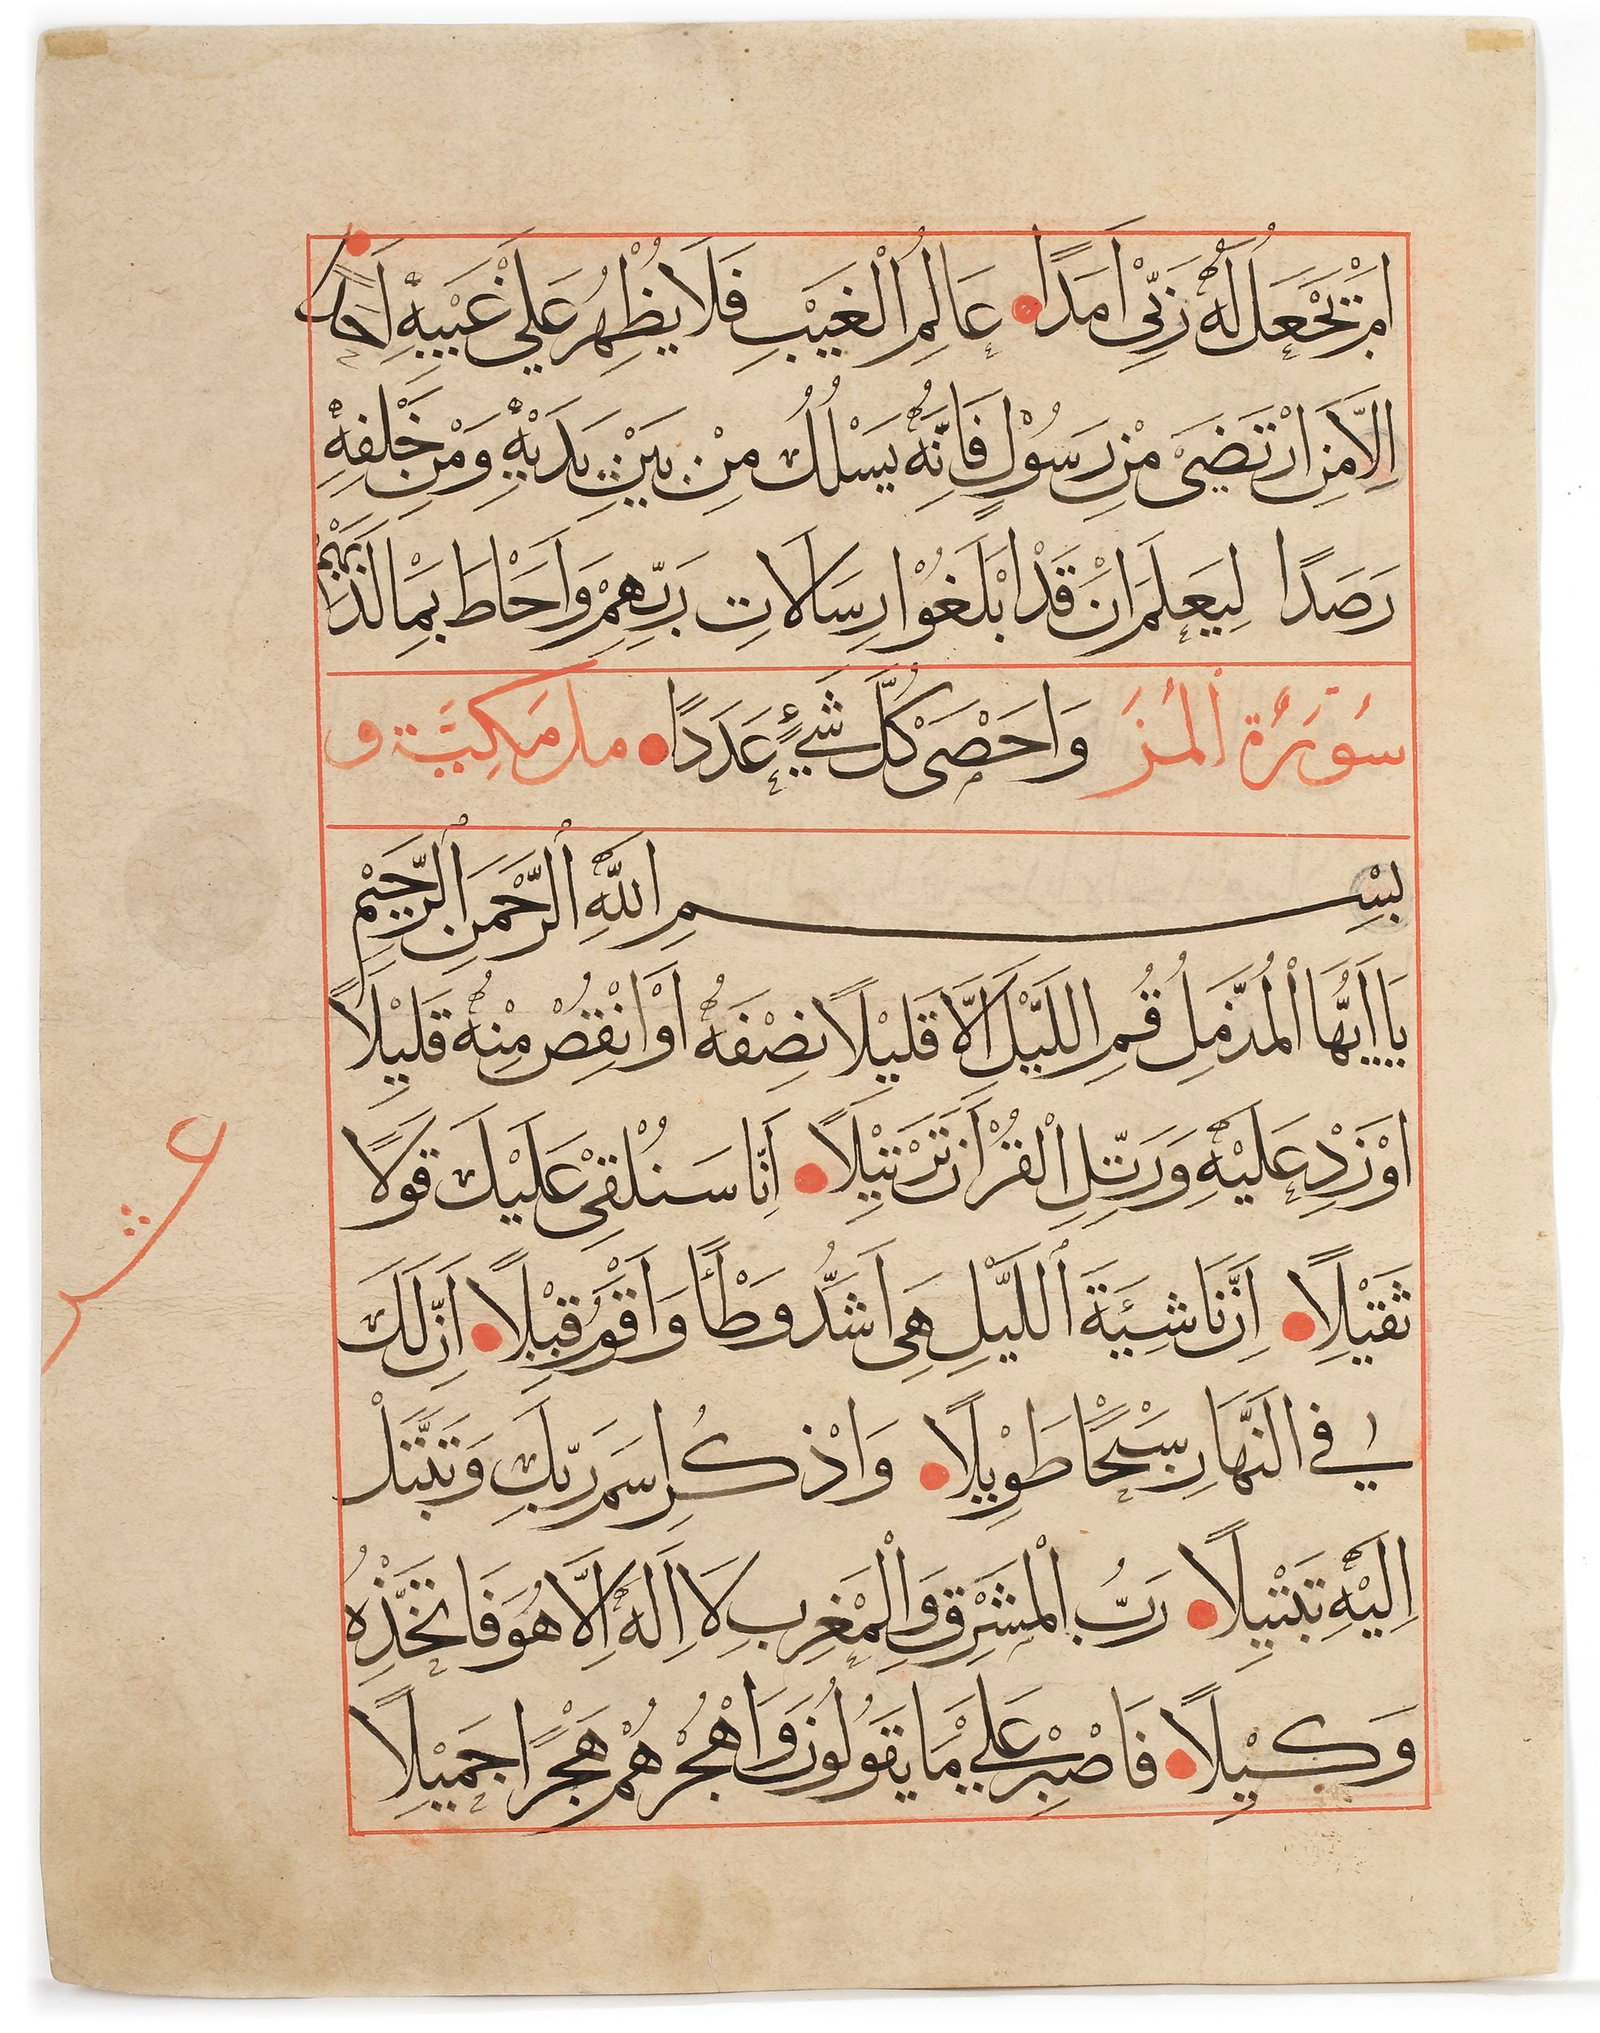 اَمْ يَجْعَلُ لَهُ رَبِّي اَمَدًا عَالِمُ الْغَيْبِ فَلَا يُظْهِرُ عَلٰي غَيْبِهِ اَحَدًا
اِلَّا مَنِ ارْتَضَىٰ مِنْ رَسُوْلٍ فَاِنَّهُ يَسْلُكُ مِنْ بَيْنِ يَدَيْهِ وَمِنْ خَلْفِهِ
رَصَدًا لِيَعْلَمَ اَنْ قَدْ اَبْلَغُوْا رِسَالَاتِ رَبِّهِمْ وَاَحَاطَ بِمَا لَدَيْهِمْ
سُوْرَةُ الْمُزَ وَاَحْصَىٰ كُلَّ شَيْءٍ عَدَدًا مل مَكِيَّة و
بِسْمِ اللَّهِ الرَّحْمَنِ الرَّحِيْمِ
يَا اَيُّهَا الْمُزَّمِلُ قُمِ اللَّيْلَ اِلَّا قَلِيْلًا نِصْفَهُ اَوِ انْقُصْ مِنْهُ قَلِيْلًا
اَوْ زِدْ عَلَيْهِ وَرَتِّلِ الْقُرْاَنَ تَرْتِيْلًا اِنَّا سَنُلْقِيْ عَلَيْكَ قَوْلًا
ثَقِيْلًا اِنَّ نَاشِئَةَ اللَّيْلِ هِيَ اَشَدُّ وَطْأً وَاَقْوَمُ قِيْلًا اِنَّ لَكَ
فِي النَّهَارِ سَبْحًا طَوِيْلًا وَاذْكُرِ اسْمَ رَبِّكَ وَتَبَتَّلْ
اِلَيْهِ تَبْتِيْلًا رَبُّ الْمَشْرِقِ وَالْمَغْرِبِ لَا اِلَهَ اِلَّا هُوَ فَاتَّخِذْهُ
وَكِيْلًا فَاصْبِرْ عَلٰي مَا يَقُوْلُوْنَ وَاهْجُرْهُمْ هَجْرًا جَمِيْلًا
عشر